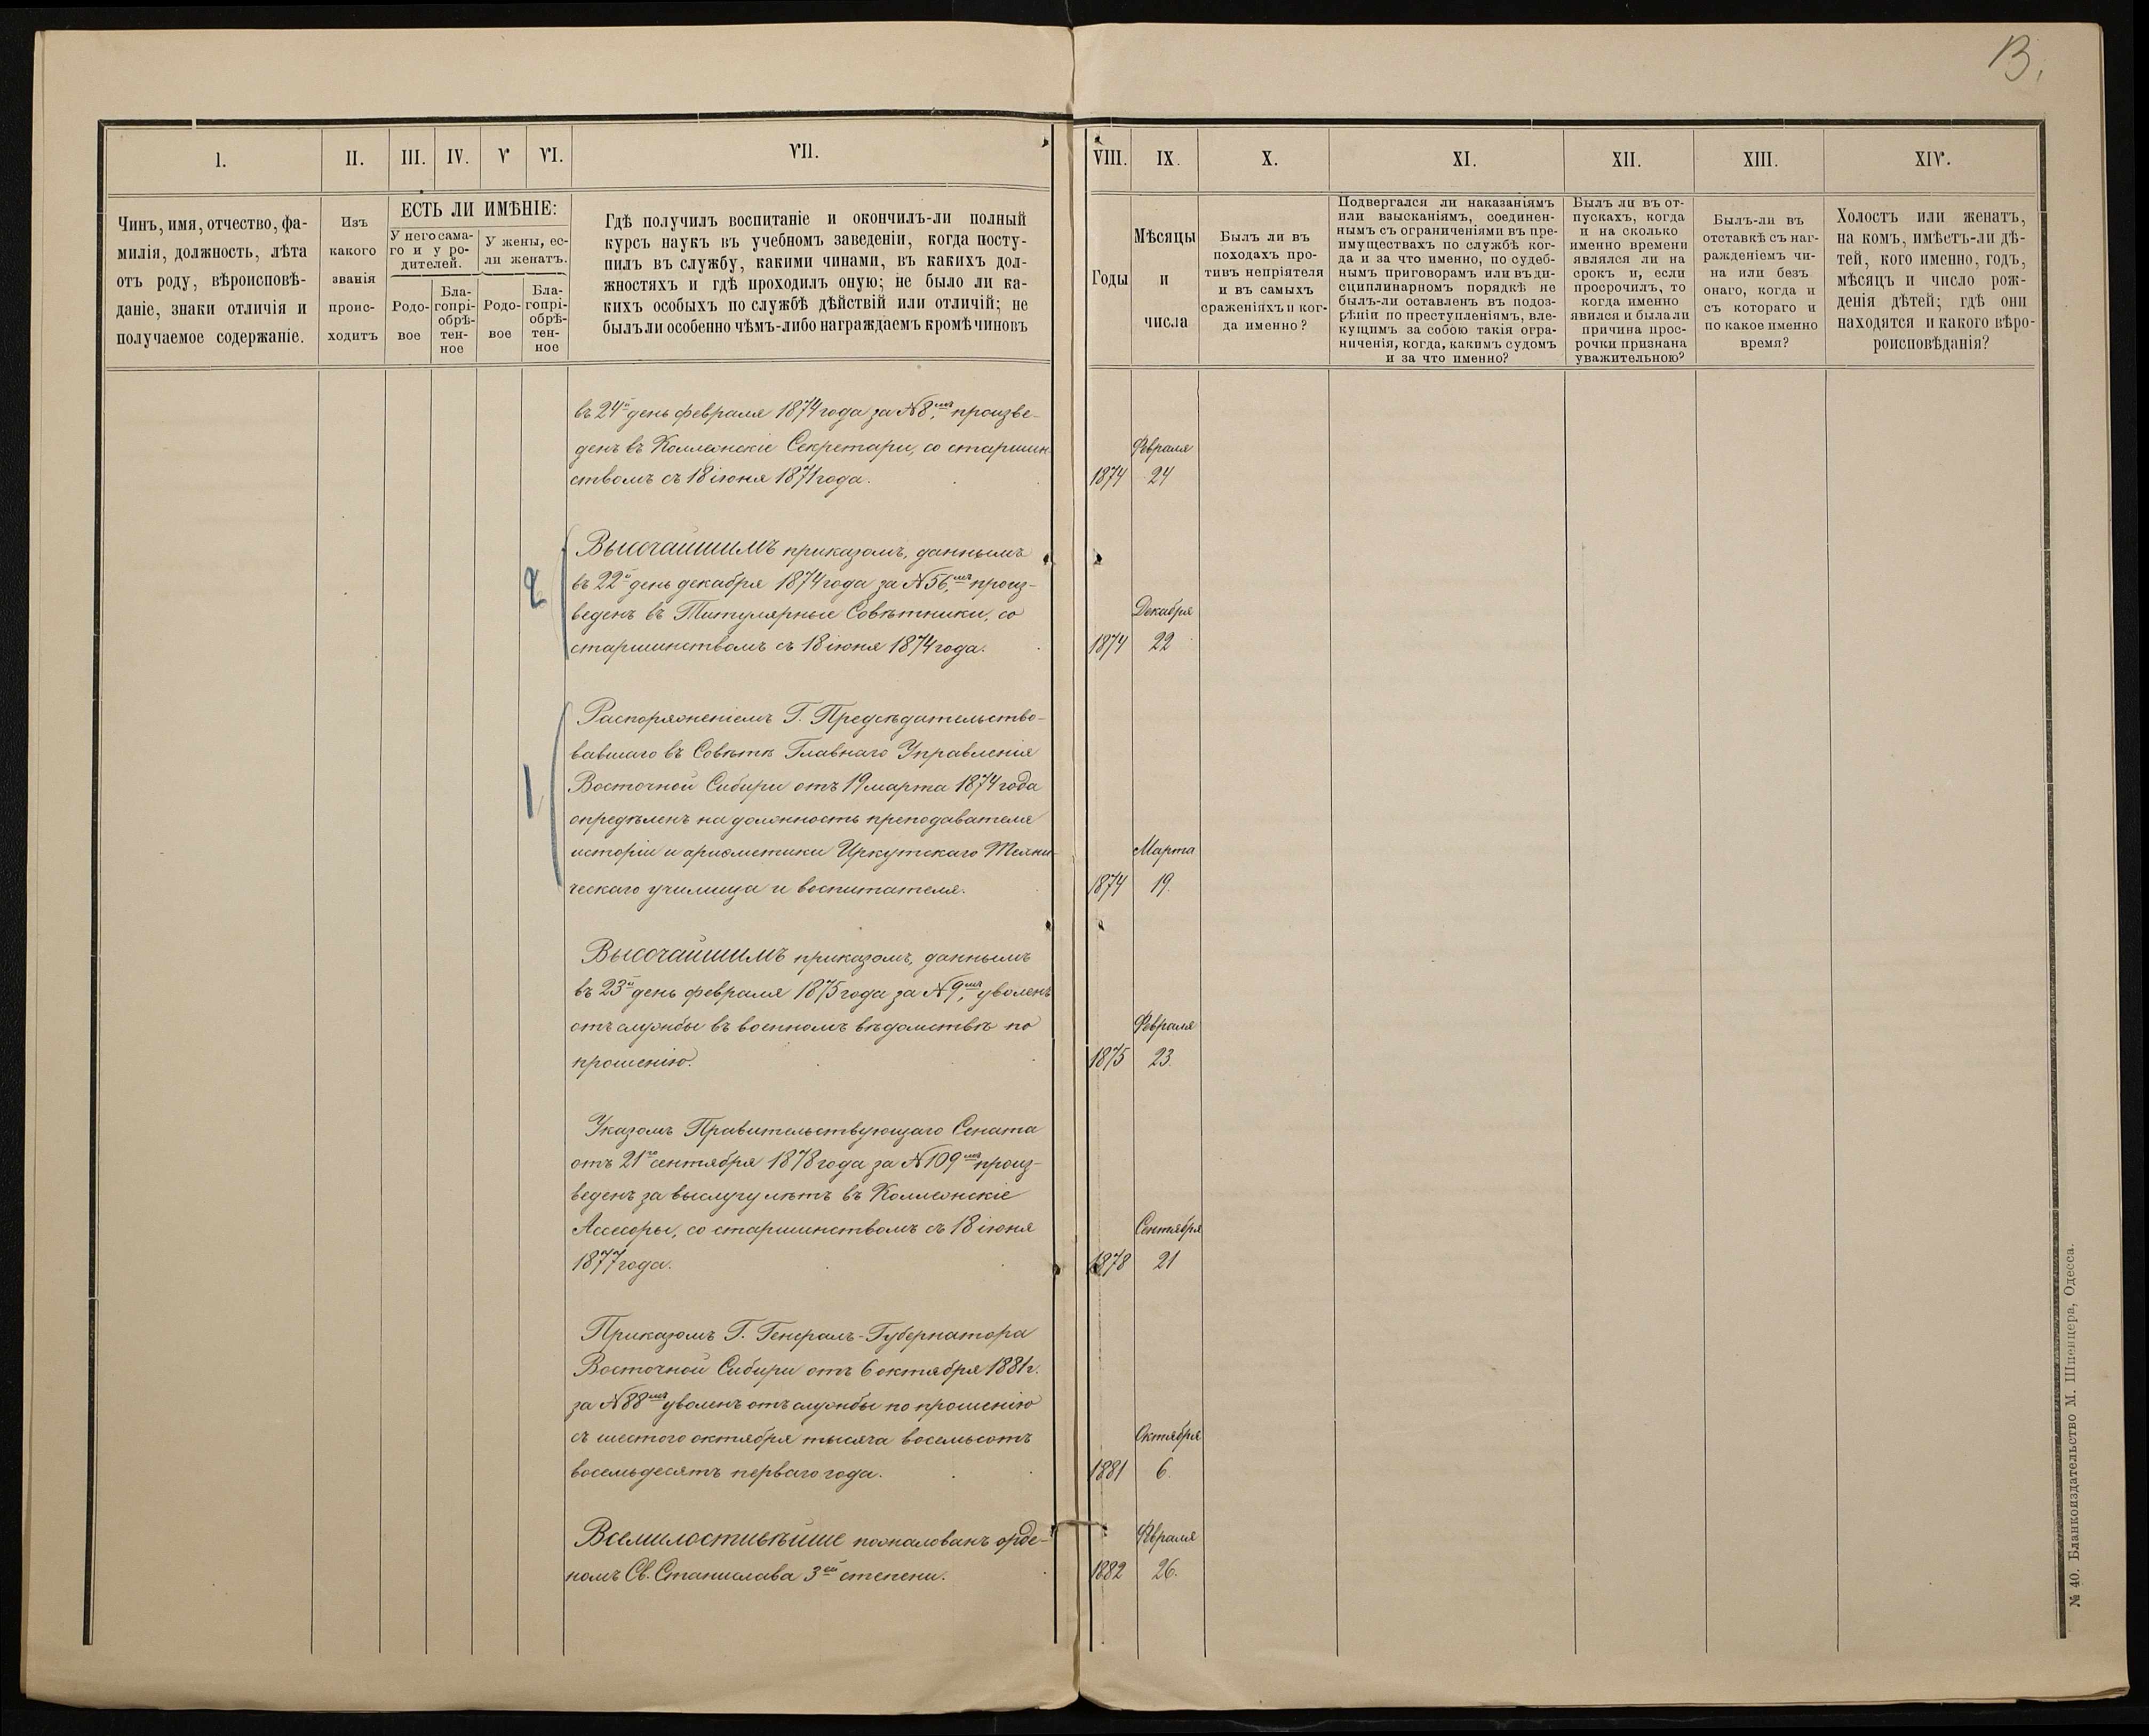 13.
I.
II.
III.
IV.
V
VI.
VII.
VIII.
IX.
X.
XI.
XII.
XIII.
XIV.
Чинъ, имя, отчество, фа-
милія, должность, лѣта
отъ роду, вѣроисповѣ-
даніе, знаки отличія и
получаемое содержаніе.
Изъ
какого
званія
проис-
ходитъ
ЕСТЬ ЛИ ИМѢНІЕ:
У него сама-
го и у ро-
дителей.
У жены, ес-
ли женатъ.
Родо-
вое
Бла-
гопрі-
обрѣ-
тен-
ное
Родо-
вое
Бла-
гопрі-
обрѣ-
тен-
ное
Гдѣ получилъ воспитаніе и окончилъ-ли полный
курсъ наукъ въ учебномъ заведеніи, когда посту-
пилъ въ службу, какими чинами, въ какихъ дол-
жностяхъ и гдѣ проходилъ оную; не было ли ка-
кихъ особыхъ по службѣ дѣйствій или отличій; не
былъ ли особенно чѣмъ-либо награждаемъ кромѣ чиновъ
Годы
Мѣсяцы
и
числа
Былъ ли въ
походахъ про-
тивъ непріятеля
и въ самыхъ
сраженіяхъ и ког-
да именно?
Подвергался ли наказаніямъ
или взысканіямъ, соединен-
нымъ съ ограниченіями въ пре-
имуществахъ по службѣ ког-
да и за что именно, по судеб-
нымъ приговорамъ или въ ди-
сциплинарномъ порядкѣ не
былъ-ли оставленъ въ подоз-
рѣніи по преступленіямъ, вле-
кущимъ за собою такія огра-
ниченія, когда, какимъ судомъ
и за что именно?
Былъ ли въ от-
пускахъ, когда
и на сколько
именно времени
являлся ли на
срокъ и, если
просрочилъ, то
когда именно
явился и была ли
причина прос-
рочки признана
уважительною?
Былъ-ли въ
отставкѣ съ наг-
ражденіемъ чи-
на или безъ
онаго, когда и
съ котораго и
по какое именно
время?
Холостъ или женатъ,
на комъ, имѣетъ-ли дѣ-
тей, кого именно, годъ,
мѣсяцъ и число рож-
денія дѣтей; гдѣ они
находятся и какого вѣро-
роисповѣданія?
въ 24й день февраля 1874 года за №8мъ, произве-
денъ въ Коллежскіе Секретари, со старшин
ствомъ съ 18 іюня 1871 года.
Февраля
1874 24
2
Высочайшимъ приказомъ, даннымъ
въ 22й день декабря 1874 года за №56мъ, произ-
веденъ въ Титулярные Совѣтники, со
старшинствомъ съ 18 іюня 1874 года.
Декабря
1874 22
1
Распоряженіемъ Г. Предсѣдательство-
вавшаго въ Совѣтѣ Главнаго Управленія
Восточной Сибири отъ 19 марта 1874 года
опредѣленъ на должность преподавателя
исторіи и ариѳметики Иркутскаго Техни-
ческаго училища и воспитателя.
Марта
1874 19.
Высочайшимъ приказомъ, даннымъ
въ 23й день февраля 1875 года за №9мъ, уволенъ
отъ службы въ военномъ вѣдомствѣ по
прошенію.
Февраля
1875 23.
Указомъ Правительствующаго Сената
отъ 21го сентября 1878 года за №109мъ произ-
веденъ за выслугу лѣтъ въ Коллежскіе
Ассесоры, со старшинствомъ съ 18 іюня
1877 года.
Сентября
1878 21
Приказомъ Г. Генералъ-Губернатора
Восточной Сибири отъ 6 октября 1881 г.
за №88мъ уволенъ отъ службы по прошенію
съ шестого октября тысяча восемьсотъ
восемьдесятъ перваго года.
Октября
1881 6.
Всемилостивѣйше пожалованъ орде-
номъ Св. Станислава 3ей степени.
Февраля
1882 26.
№ 40. Бланкоиздательство М. Шпенцера, Одесса.